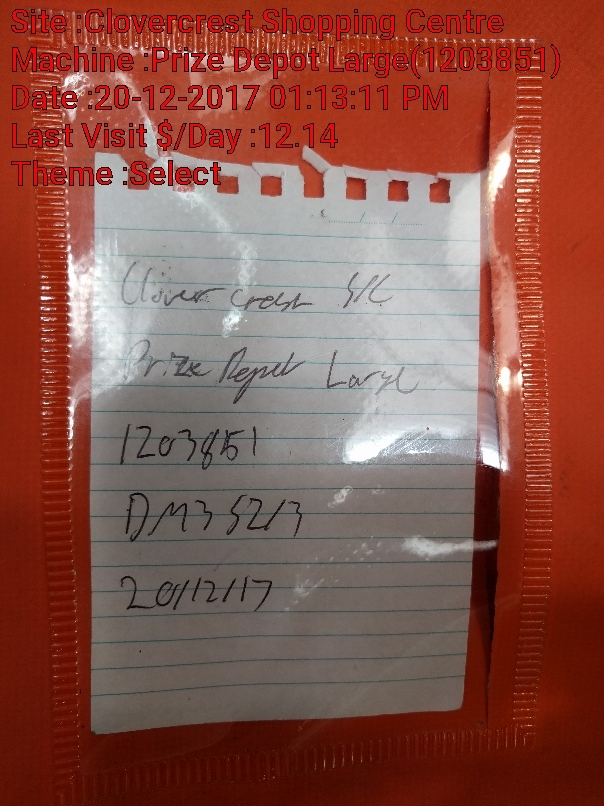 Site :Clovercrest Shopping Centre
Machine :Prize Depot Large(1203851)
Date :20-12-2017 01:13:11 PM
Last Visit $/Day :12.14
Theme :Select
Clover crest S/C
Prize Depot Large
1203851
DM3 5213
20/12/17